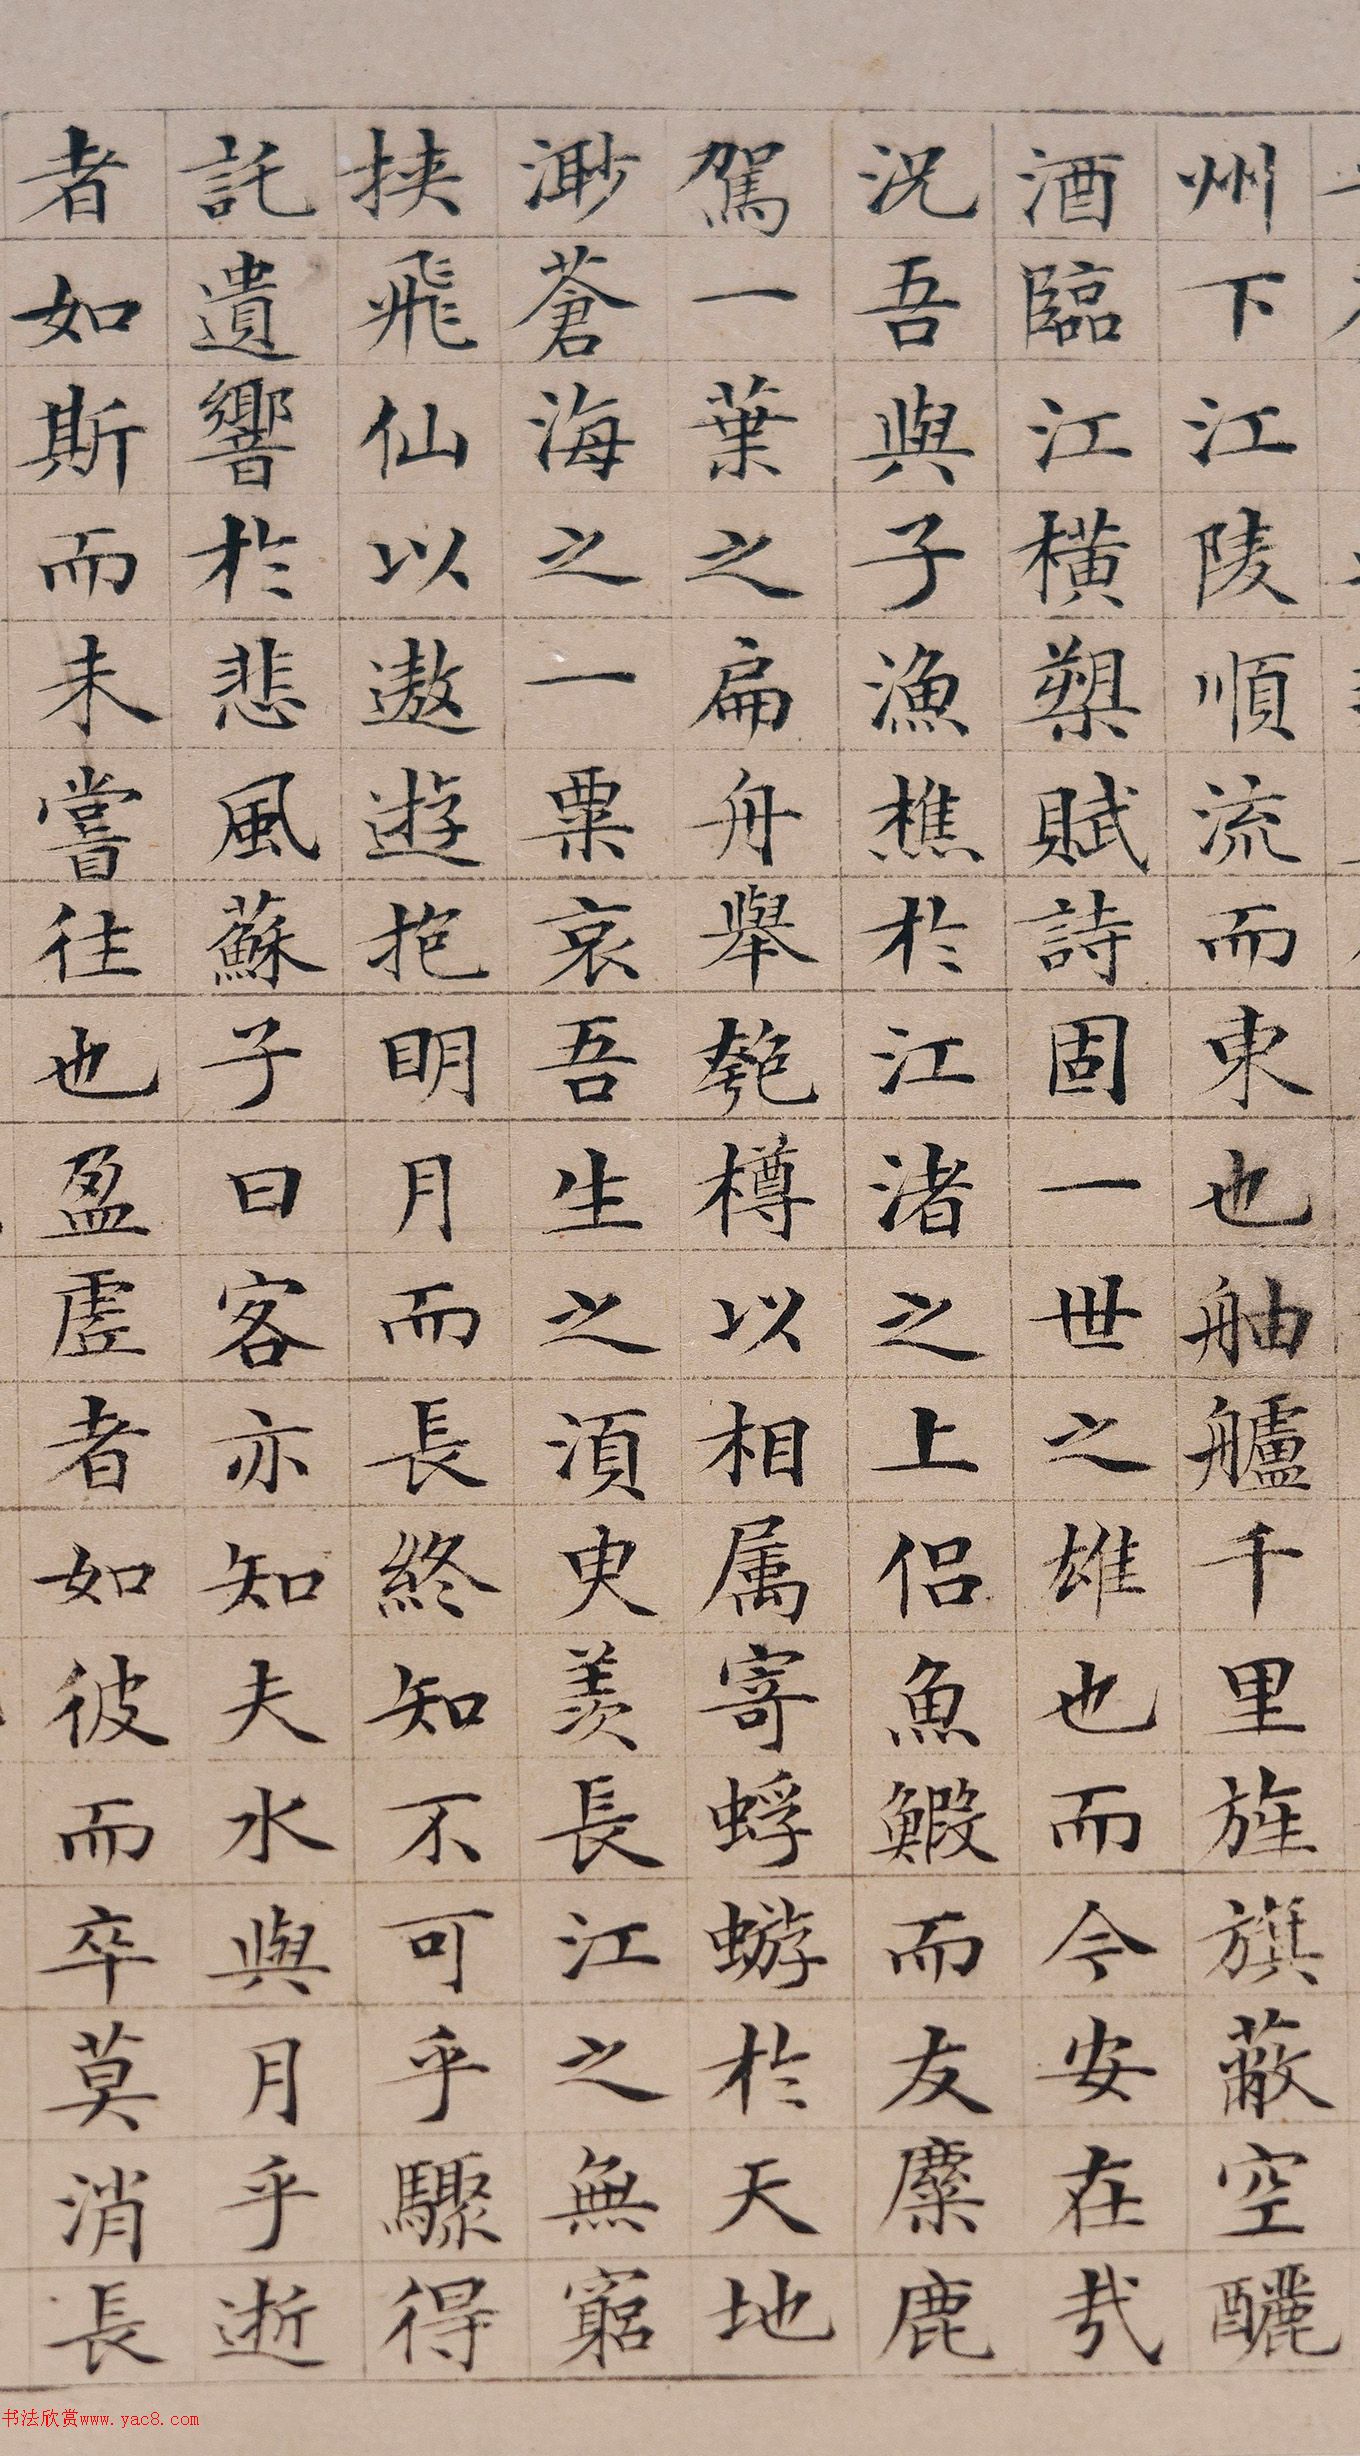 州下江陵順流而東也舳艫千里旌旗蔽空釃
酒臨江橫槊賦詩固一世之雄也而今安在哉
況吾與子漁樵於江渚之上侶魚鰕而友麋鹿
駕一葉之扁舟舉匏樽以相属寄蜉蝣於天地
渺蒼海之一粟哀吾生之須臾羨長江之無窮
挟飛仙以遨遊抱明月而長終知不可乎驟得
託遺響於悲風蘇子曰客亦知夫水與月乎逝
者如斯而未嘗往也盈虛者如彼而卒莫消長
书法欣赏www.yac8.com